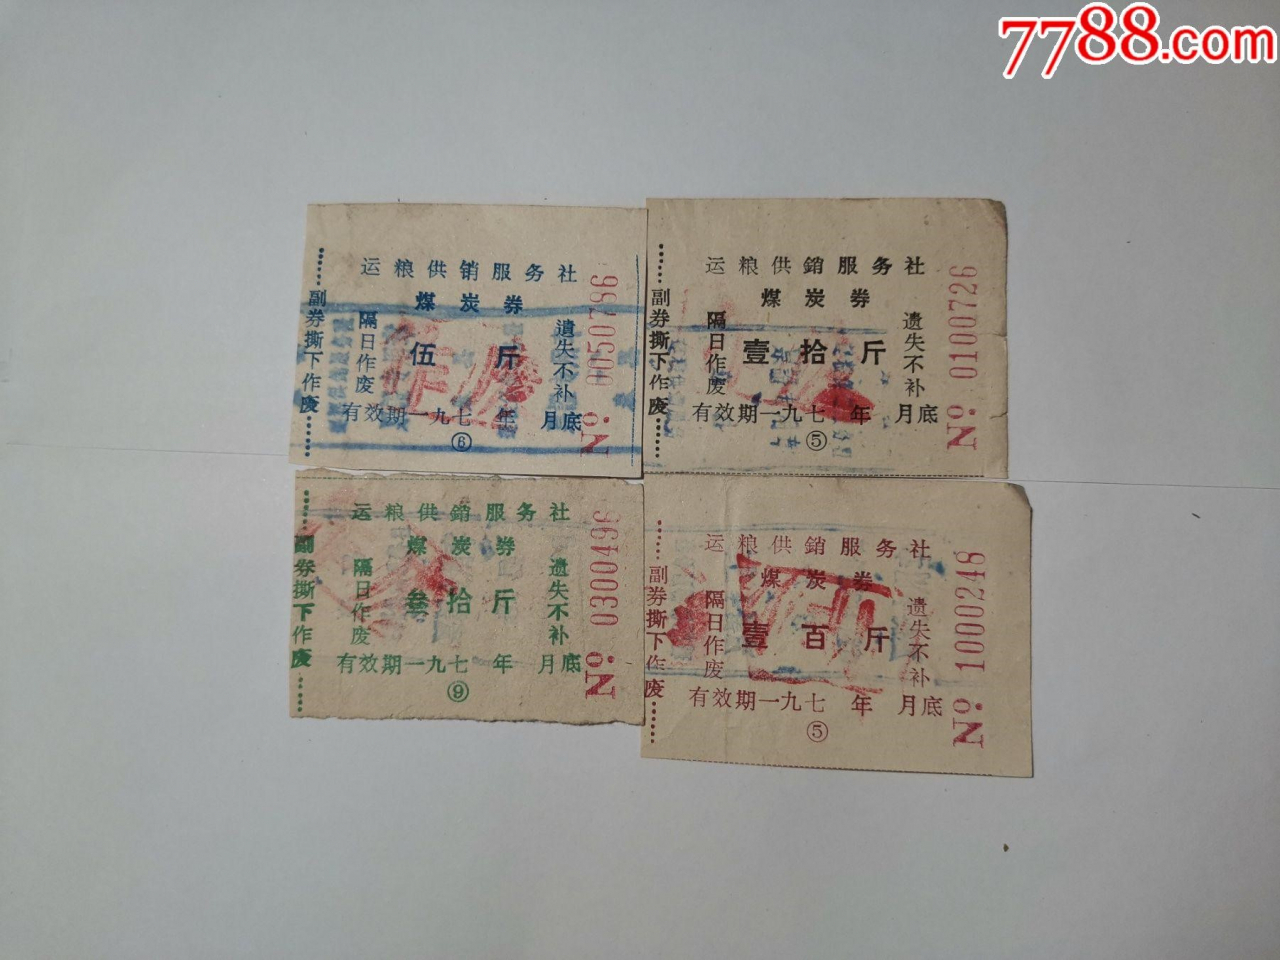 7788.com
运粮供销服务社
煤炭券
伍斤
隔日作废
遗失不补
有效期一九七 年 月底
⑥
副券撕下作废
No. 0050786
运粮供銷服务社
煤炭券
壹拾斤
隔日作废
遗失不补
有效期一九七 年 月底
⑤
副券撕下作废
No. 0100726
运粮供銷服务社
煤炭券
叁拾斤
隔日作废
遗失不补
有效期一九七 年 月底
⑨
副券撕下作废
No. 0300496
运粮供銷服务社
煤炭券
壹百斤
隔日作废
遗失不补
有效期一九七 年 月底
⑤
副券撕下作废
No. 1000248